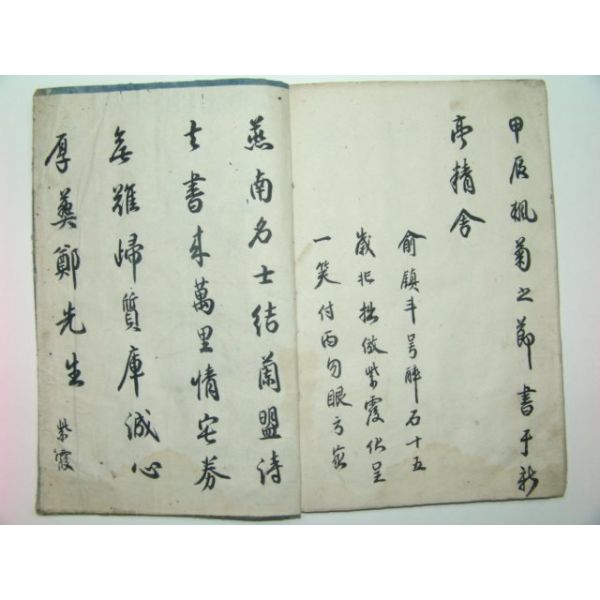 甲辰楓菊之節書于新
亭精舍
俞鎭斗号醉石十五
歲拙倣紫霞伏呈
一笑付丙勿眼方家
燕南名士結蘭盟詩
去書來萬里情宅券
無難歸質庫誠心
厚葬鄭先生
紫霞